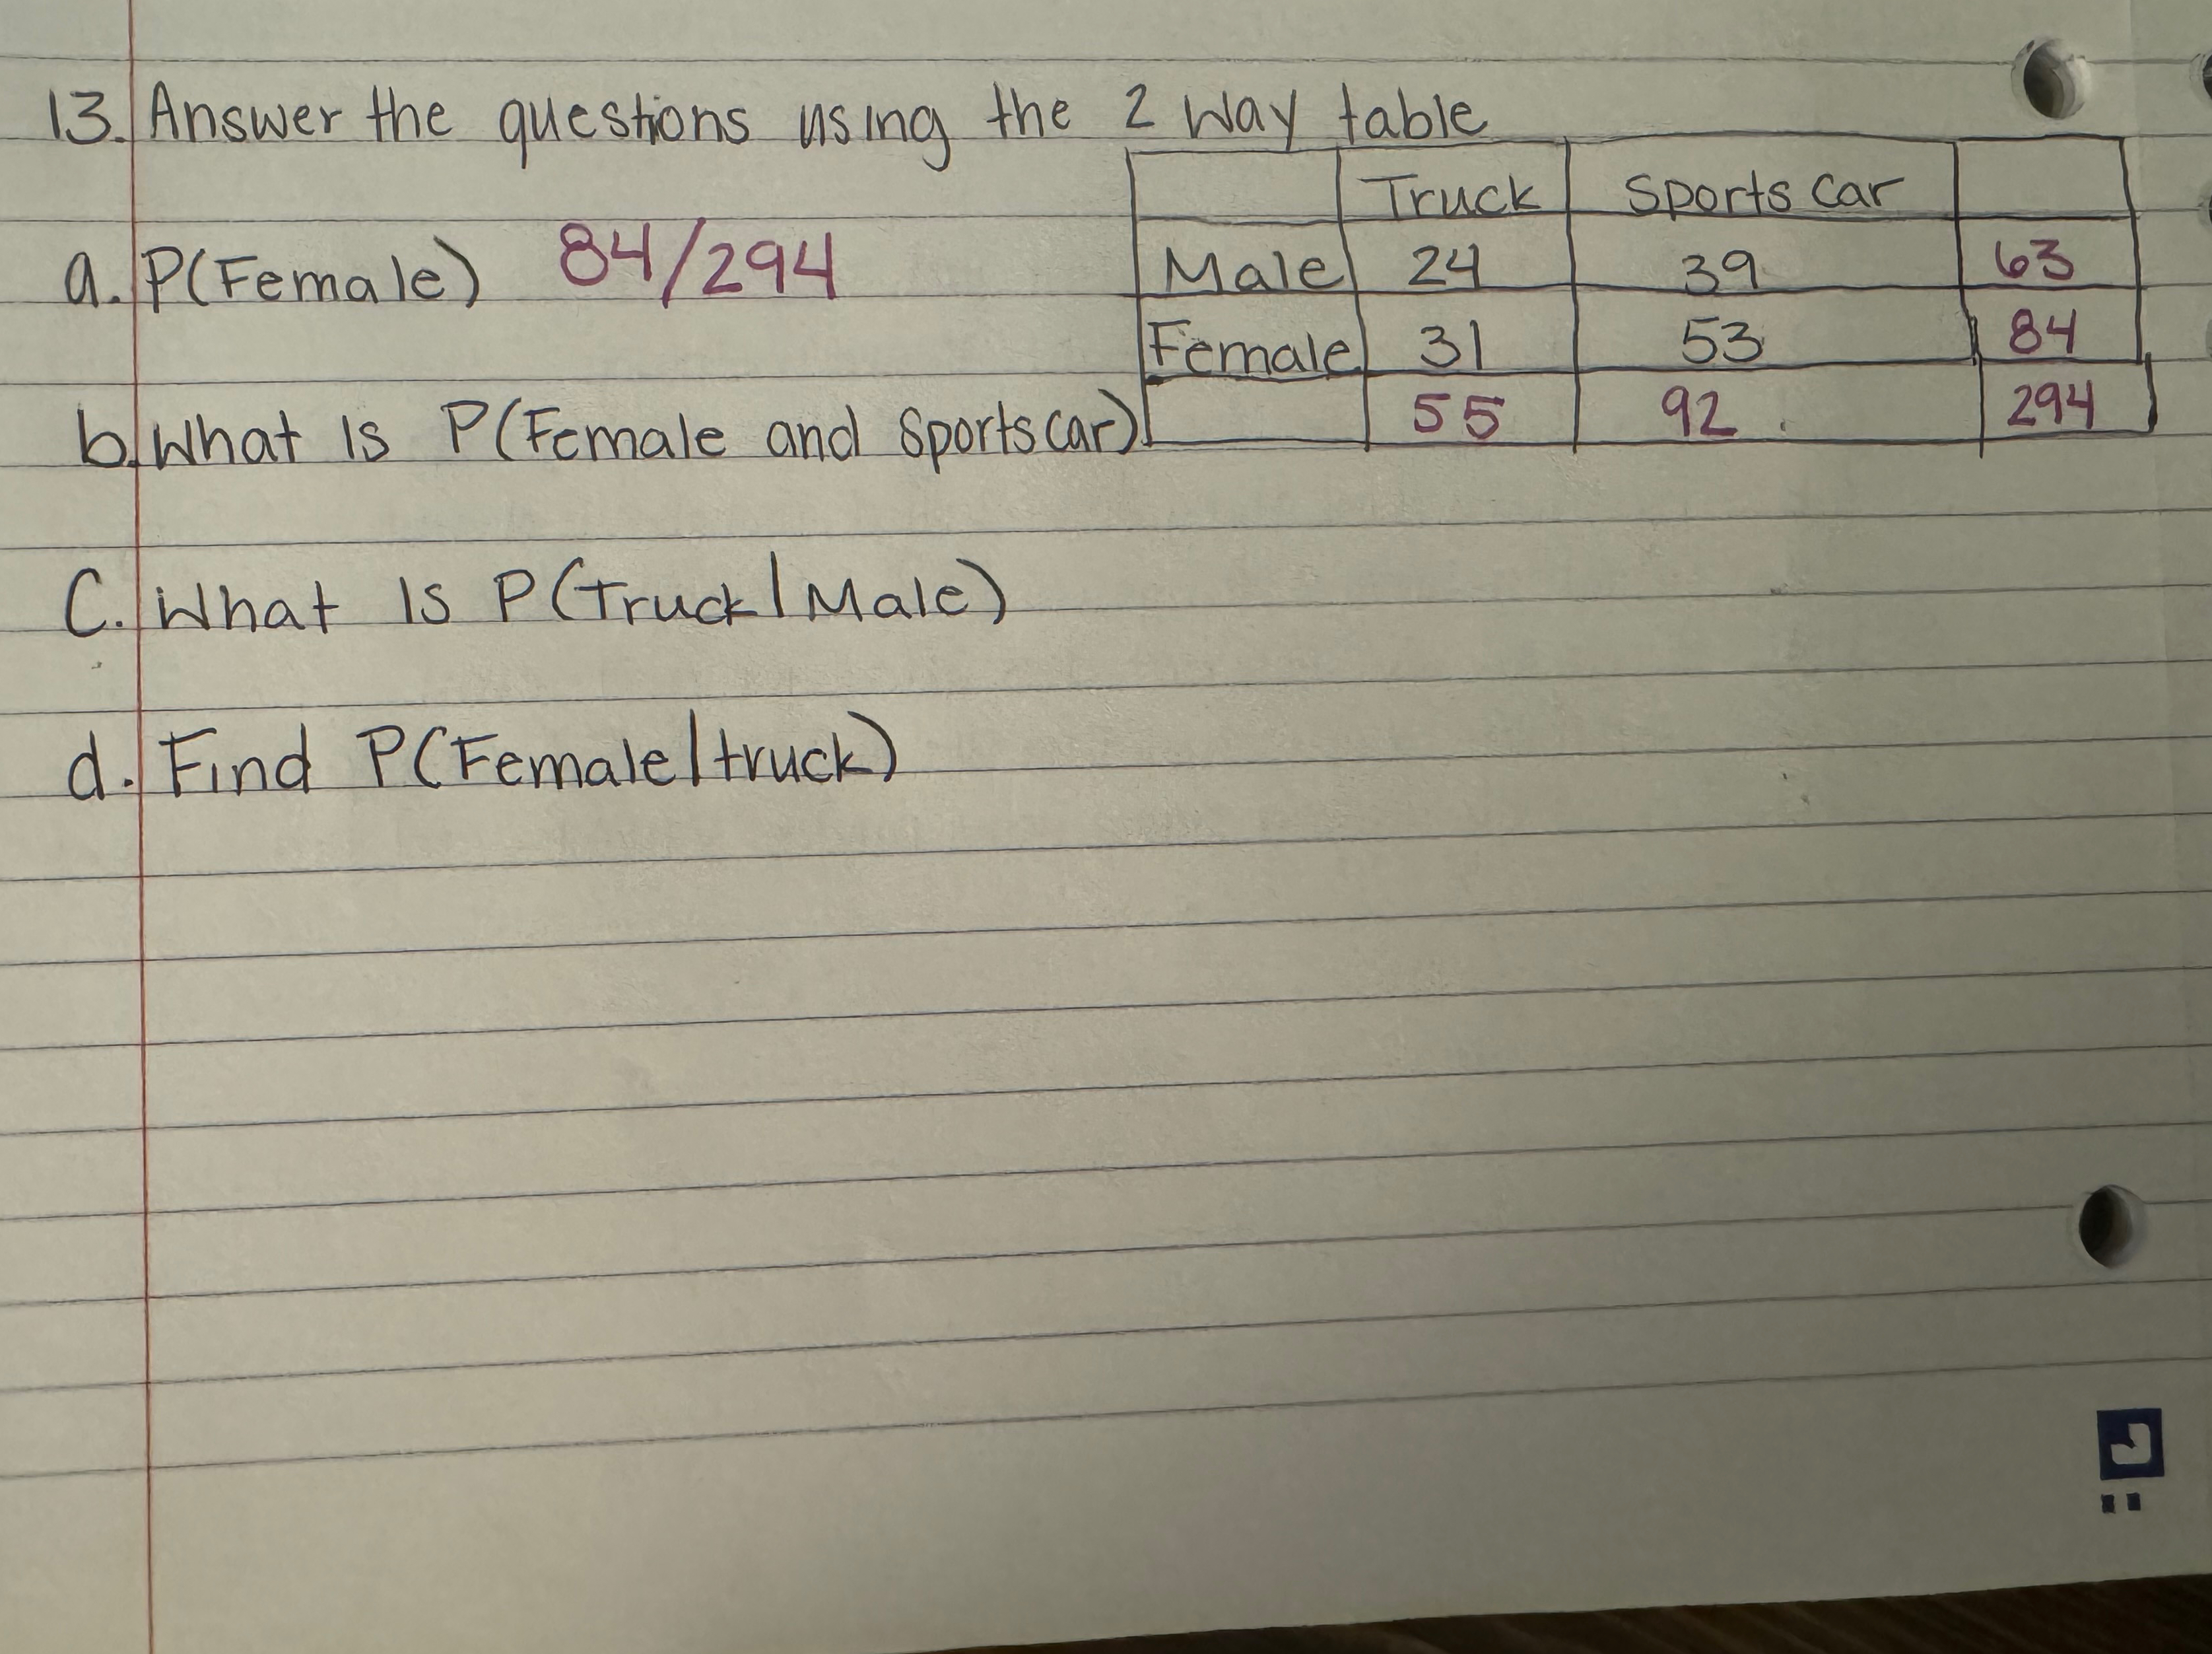 13. Answer the questions using the 2 way table
Truck Sports car
Male 24 39 63
Female 31 53 84
55 92 294
a. P(Female) 84/294
b. What is P(Female and Sports car)
C. What is P(Truck|Male)
d. Find P(Female|truck)